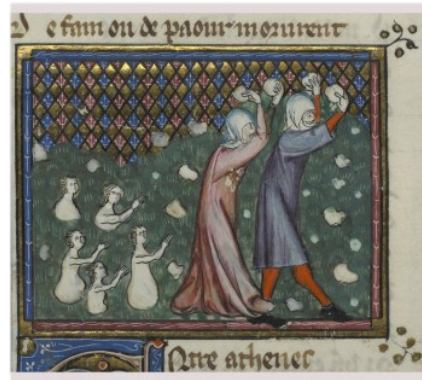 e fam ou de paour morurent
Ntre athenes